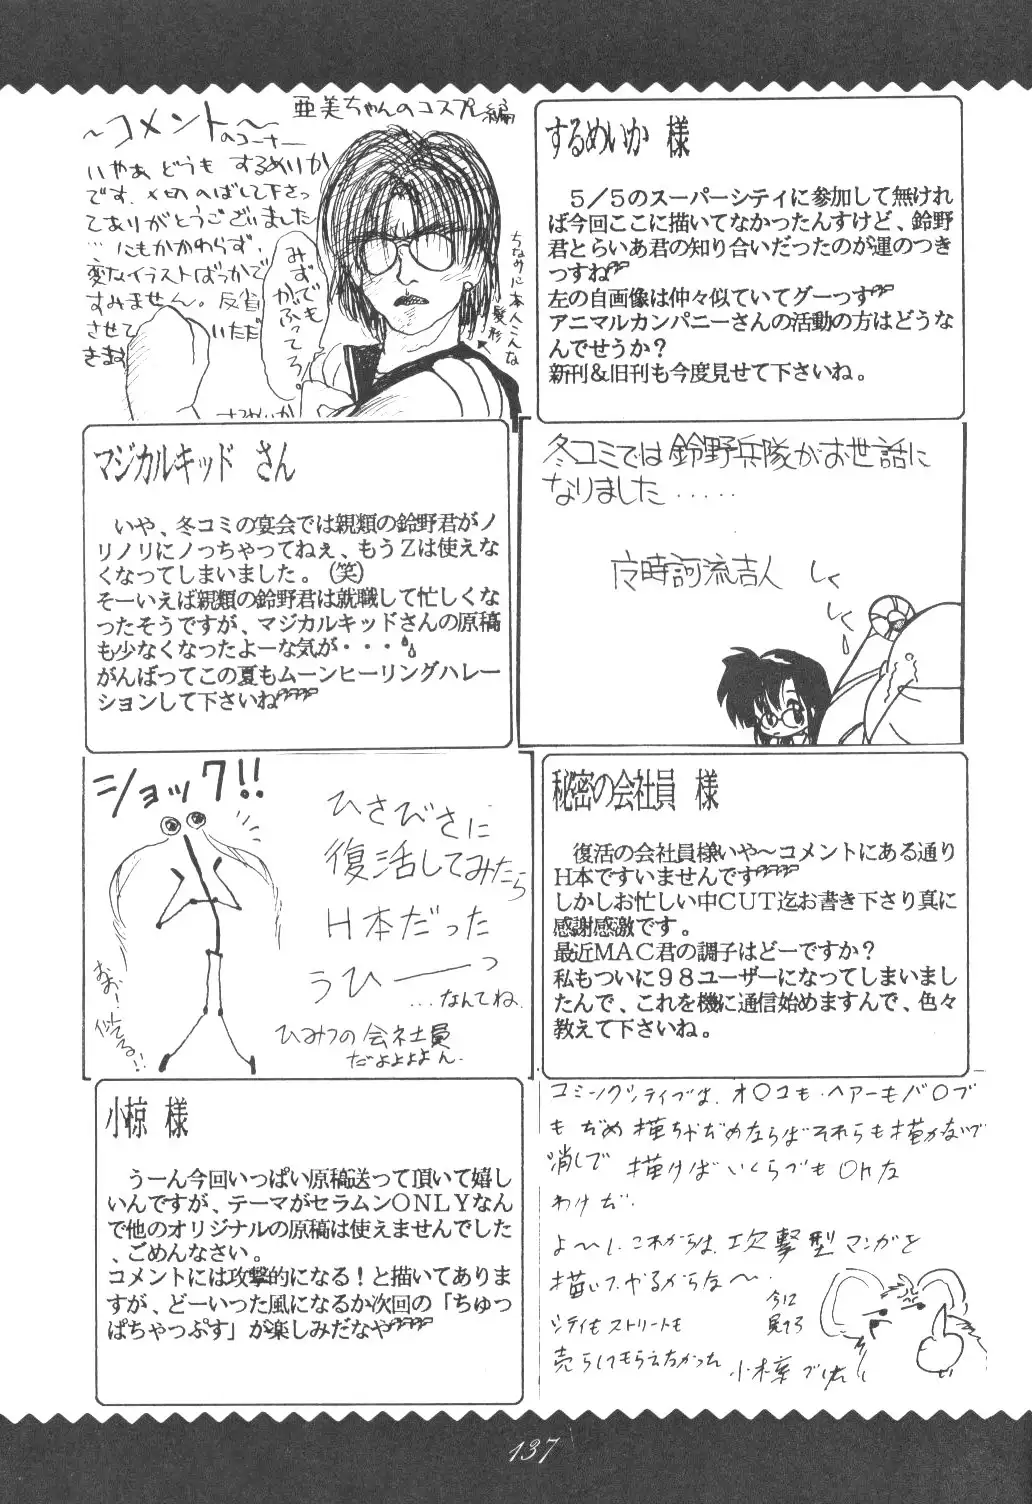 ～コメント～
のコーナー
亜美ちゃんのコスプレ編
いやあ どうも するめいか
です。〆切 のばして下さっ
てありがとうございました
…にもかかわらず、
変なイラストばっかで
すみません。反省
させて いただ
きます
みずでも
かぶってろ。
ちなみに本人こんな
髪形
するめいか
するめいか 様
５／５のスーパーシティに参加して無けれ
ば今回ここに描いてなかったんすけど、鈴野
君とらいあ君の知り合いだったのが運のつき
っすね
左の自画像は仲々似ていてグーっす
アニマルカンパニーさんの活動の方はどうな
んでせうか？
新刊＆旧刊も今度見せて下さいね。
マジカルキッド さん
いや、冬コミの宴会では親類の鈴野君がノ
リノリにノっちゃってねぇ、もうＺは使えな
くなってしまいました。（笑）
そーいえば親類の鈴野君は就職して忙しくな
ったそうですが、マジカルキッドさんの原稿
も少なくなったよーな気が・・・
がんばってこの夏もムーンヒーリングハレー
ションして下さいね
冬コミでは鈴野兵隊がお世話に
なりました.....
時訶流吉人
しく
しく
ショック!!
ひさびさに
復活してみたら
H本だった
うひーーっ
...なんてね.
おおー!
似てる!!
ひみつの会社員
だよよよよん.
秘密の会社員 様
復活の会社員様いや～コメントにある通り
Ｈ本ですいませんです
しかしお忙しい中ＣＵＴ迄お書き下さり真に
感謝感激です。
最近ＭＡＣ君の調子はどーですか？
私もついに９８ユーザーになってしまいまし
たんで、これを機に通信始めますんで、色々
教えて下さいね。
小椋 様
うーん今回いっぱい原稿送って頂いて嬉し
いんですが、テーマがセラムンＯＮＬＹなん
で他のオリジナルの原稿は使えませんでした
、ごめんなさい。
コメントには攻撃的になる！と描いてありま
すが、どーいった風になるか次回の「ちゅっ
ぱちゃっぷす」が楽しみだなや
コミックシティでは、オ〇コも・ヘアーもバ〇ブ
も だめ 描ちゃだめならばそれらも描かないで
消しで 描けば いくらでも OKな
わけだ.
よ～し、これからは、攻撃型マンガを
描いてやるからな～.
今に
見てろ
シティも ストリートも
売らしてもらえなかった
小椋でした
137